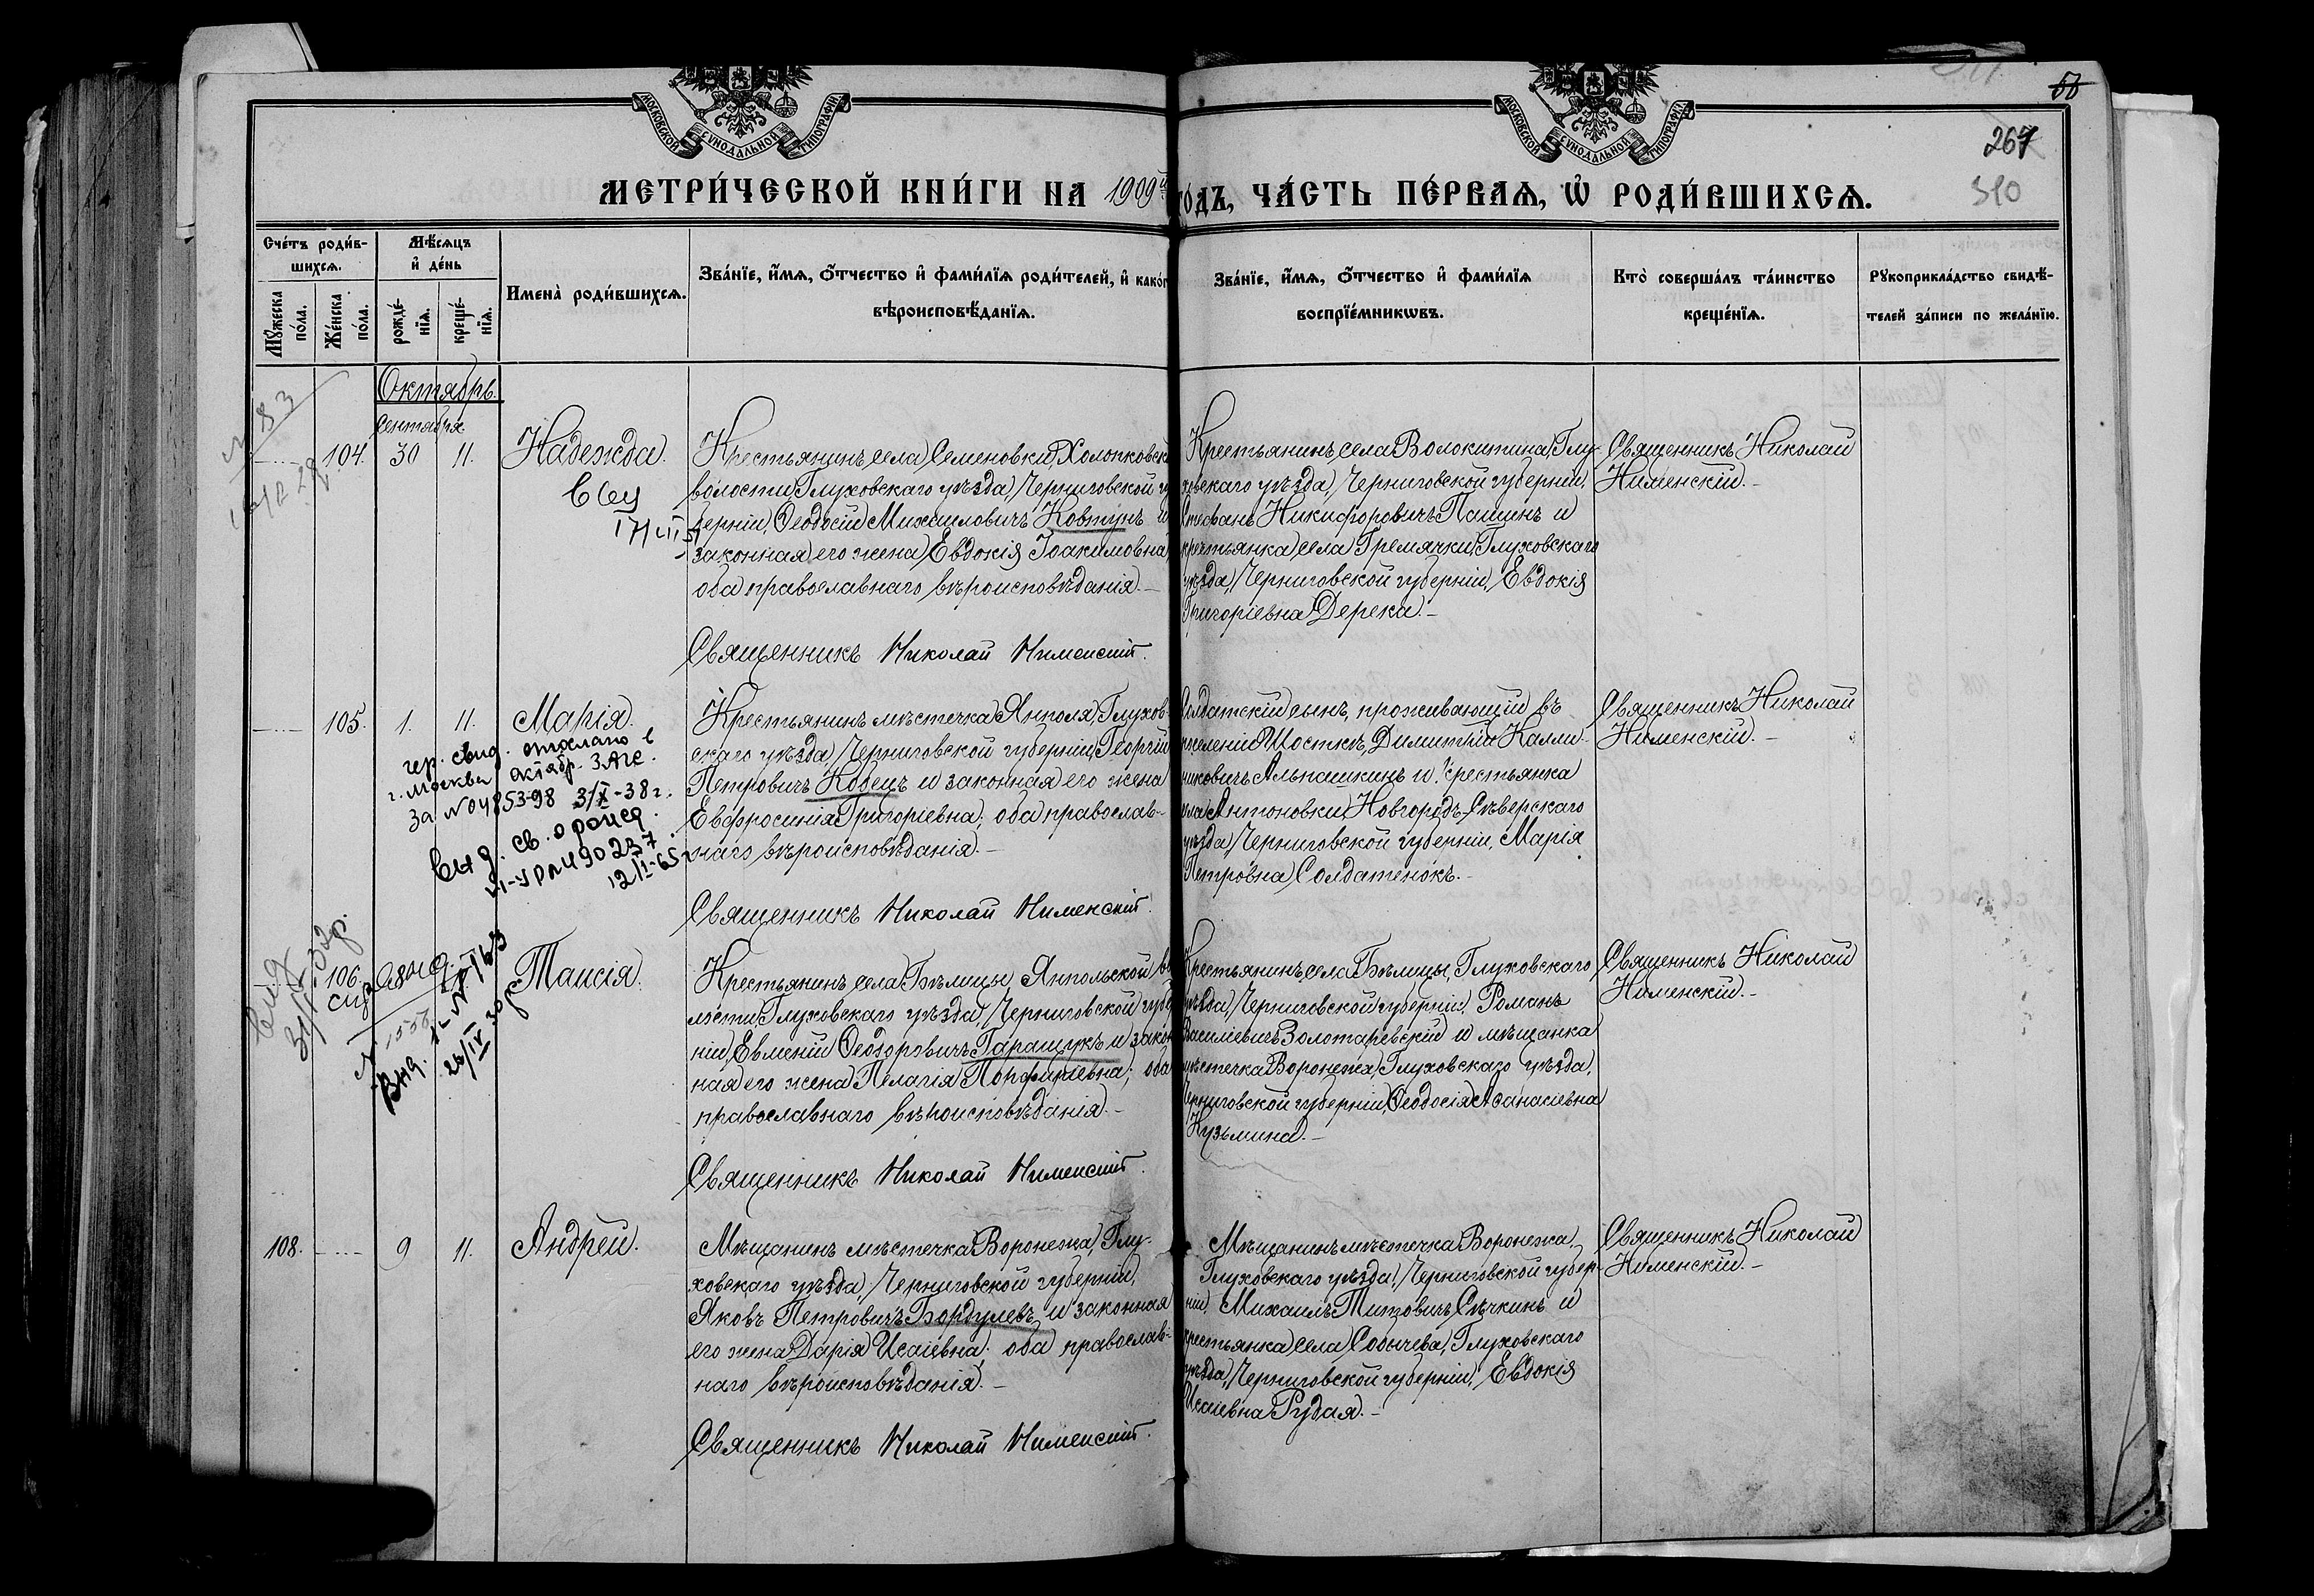 МОСКОВСКОЙ СУНОДАЛЬНОЙ ТИПОГРАФІИ
МОСКОВСКОЙ СУНОДАЛЬНОЙ ТИПОГРАФІИ
267
310
МЕТРИ́ЧЕСКОЙ КНИ́ГИ НА 1909й
го́дъ, ЧА́СТЬ ПЕ́РВАѦ, Ѡ҆ РОДИ́ВШИХСѦ.
Сче́тъ роди́в-
шихсѧ.
Мѣ́сѧцъ
и҆ де́нь
Мꙋ́жеска по́ла.
Же́нска по́ла.
рожде́-
нїѧ.
креще́-
нїѧ.
Имена̀ роди́вшихсѧ.
Зва́нїе, и҆́мѧ, ѻ҆́тчество и҆ фами́лїѧ роди́телей, и҆ како́г
вѣроисповѣ́данїѧ.
Зва́нїе, и҆́мѧ, ѻ҆́тчество и҆ фами́лїѧ
воспрїе́мникѡвъ.
Кто̀ соверша́лъ та́инство
креще́нїѧ.
Рꙋкоприкла́дство свидѣ́-
телей за́писи по жела́нїю.
Октябрь.
Сентября.
104. 30 11. Надежда.
Крестьянинъ села Семеновки, Холопковск
волости, Глуховскаго уѣзда, Черниговской гу
берніи, Ѳеодосій Михаиловичъ Ковтунъ и
законная его жена Евдокія Іоакимовна,
оба православнаго вѣроисповѣданія.—
Священникъ Николай Нименскій.
Крестьянинъ села Волокитина, Глу-
ховскаго уѣзда, Черниговской губерніи,
Стефанъ Никифоровичъ Пашинъ и
крестьянка села Гремячки, Глуховскаго
уѣзда, Черниговской губерніи, Евдокія
Григоріевна Дерека.—
Священникъ Николай
Нименскій.—
105. 1. 11. Марія.
гер. свид. отослано в
г. Москвы октябр. ЗАГС.
За № 0485398 3/X-38 г.
Выд. св. о рожд.
12/II-65 г.
Крестьянинъ мѣстечка Янполя, Глухов-
скаго уѣзда, Черниговской губерніи, Георгій
Петровичъ Кобецъ и законная его жена
Евфросинія Григоріевна; оба православ-
наго вѣроисповѣданія.—
Священникъ Николай Нименскій.
Солдатскій сынъ, проживающій въ
поселеніи Шосткѣ, Димитрій Калли-
никовичъ Альпашкинъ и крестьянка
села Антоновки, Новгородъ-Сѣверскаго
уѣзда, Черниговской губерніи, Марія
Петровна Солдатенокъ.—
Священникъ Николай
Нименскій.—
106. Таисія.
26/IV 30 г
Крестьянинъ села Бѣлицы, Янпольской во
лости, Глуховскаго уѣзда, Черниговской губе
ніи, Евменій Ѳеодоровичъ Гаращукъ и закон
ная его жена Пелагія Порфиріевна; оба
православнаго вѣроисповѣданія.—
Священникъ Николай Нименскій.
Крестьянинъ села Бѣлицы, Глуховскаго
уѣзда, Черниговской губерніи, Романъ
Василіевичъ Золотаревскій и мѣщанка
мѣстечка Воронежа, Глуховскаго уѣзда,
Черниговской губерніи, Ѳеодосія Аѳанасіевна
Кузьмина.—
Священникъ Николай
Нименскій.—
108. 9 11. Андрей.
Мѣщанинъ мѣстечка Воронежа, Глу-
ховскаго уѣзда, Черниговской губерніи,
Яковъ Петровичъ Бордулевъ и законная
его жена Дарія Исаіевна; оба православ-
наго вѣроисповѣданія.—
Священникъ Николай Нименскій.
Мѣщанинъ мѣстечка Воронежа,
Глуховскаго уѣзда, Черниговской губер-
ніи, Михаилъ Титовичъ Сѣчкинъ и
крестьянка села Собычева, Глуховскаго
уѣзда, Черниговской губерніи, Евдокія
Исаіевна Рудая.—
Священникъ Николай
Нименскій.—